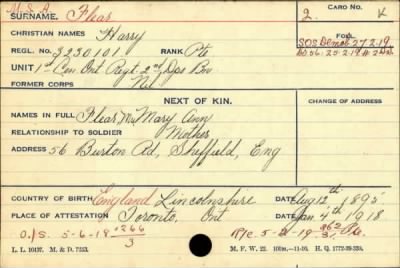 M. S. A.
SURNAME. Flear
CARD NO.
2. K
CHRISTIAN NAMES Harry
REGL. NO. 3230101 RANK Pte
FOLL.
SOS Demob 27.2.19
UNIT 1st Cen. Ont Regt. 2nd Dps Bn
FORMER CORPS Nil
NEXT OF KIN.
CHANGE OF ADDRESS
NAMES IN FULL Flear, Mrs Mary Ann
RELATIONSHIP TO SOLDIER Mother
ADDRESS 56 Burton Rd, Sheffield, Eng
COUNTRY OF BIRTH England Lincolnshire DATE Aug 12th 1895
PLACE OF ATTESTATION Toronto, Ont DATE Jan. 4th 1918
O/S. 5-6-18 266/3
R/c. 5-2-19
L. L. 10437. M. & D. 7253. M. F. W. 22. H. Q. 1772-39-339.